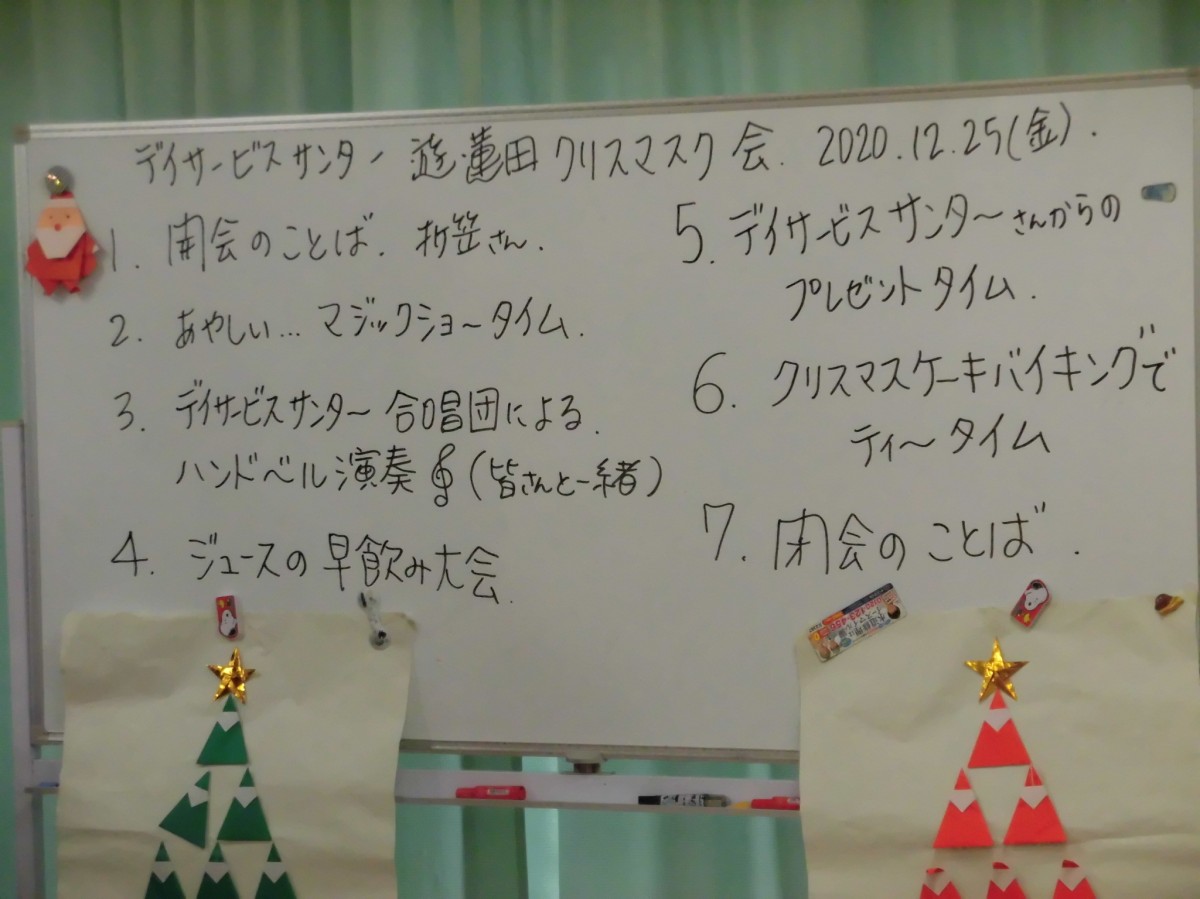 デイサービスサンター 遊蓮田 クリスマスク会. 2020.12.25(金).
1. 開会のことば. 折笠さん.
2. あやしい… マジックショータイム.
3. デイサービスサンター 合唱団による.
ハンドベル演奏 𝄞 (皆さんと一緒)
4. ジュースの早飲み大会.
5. デイサービスサンターさんからの
プレゼントタイム.
6. クリスマスケーキバイキングで
ティータイム
7. 閉会のことば.